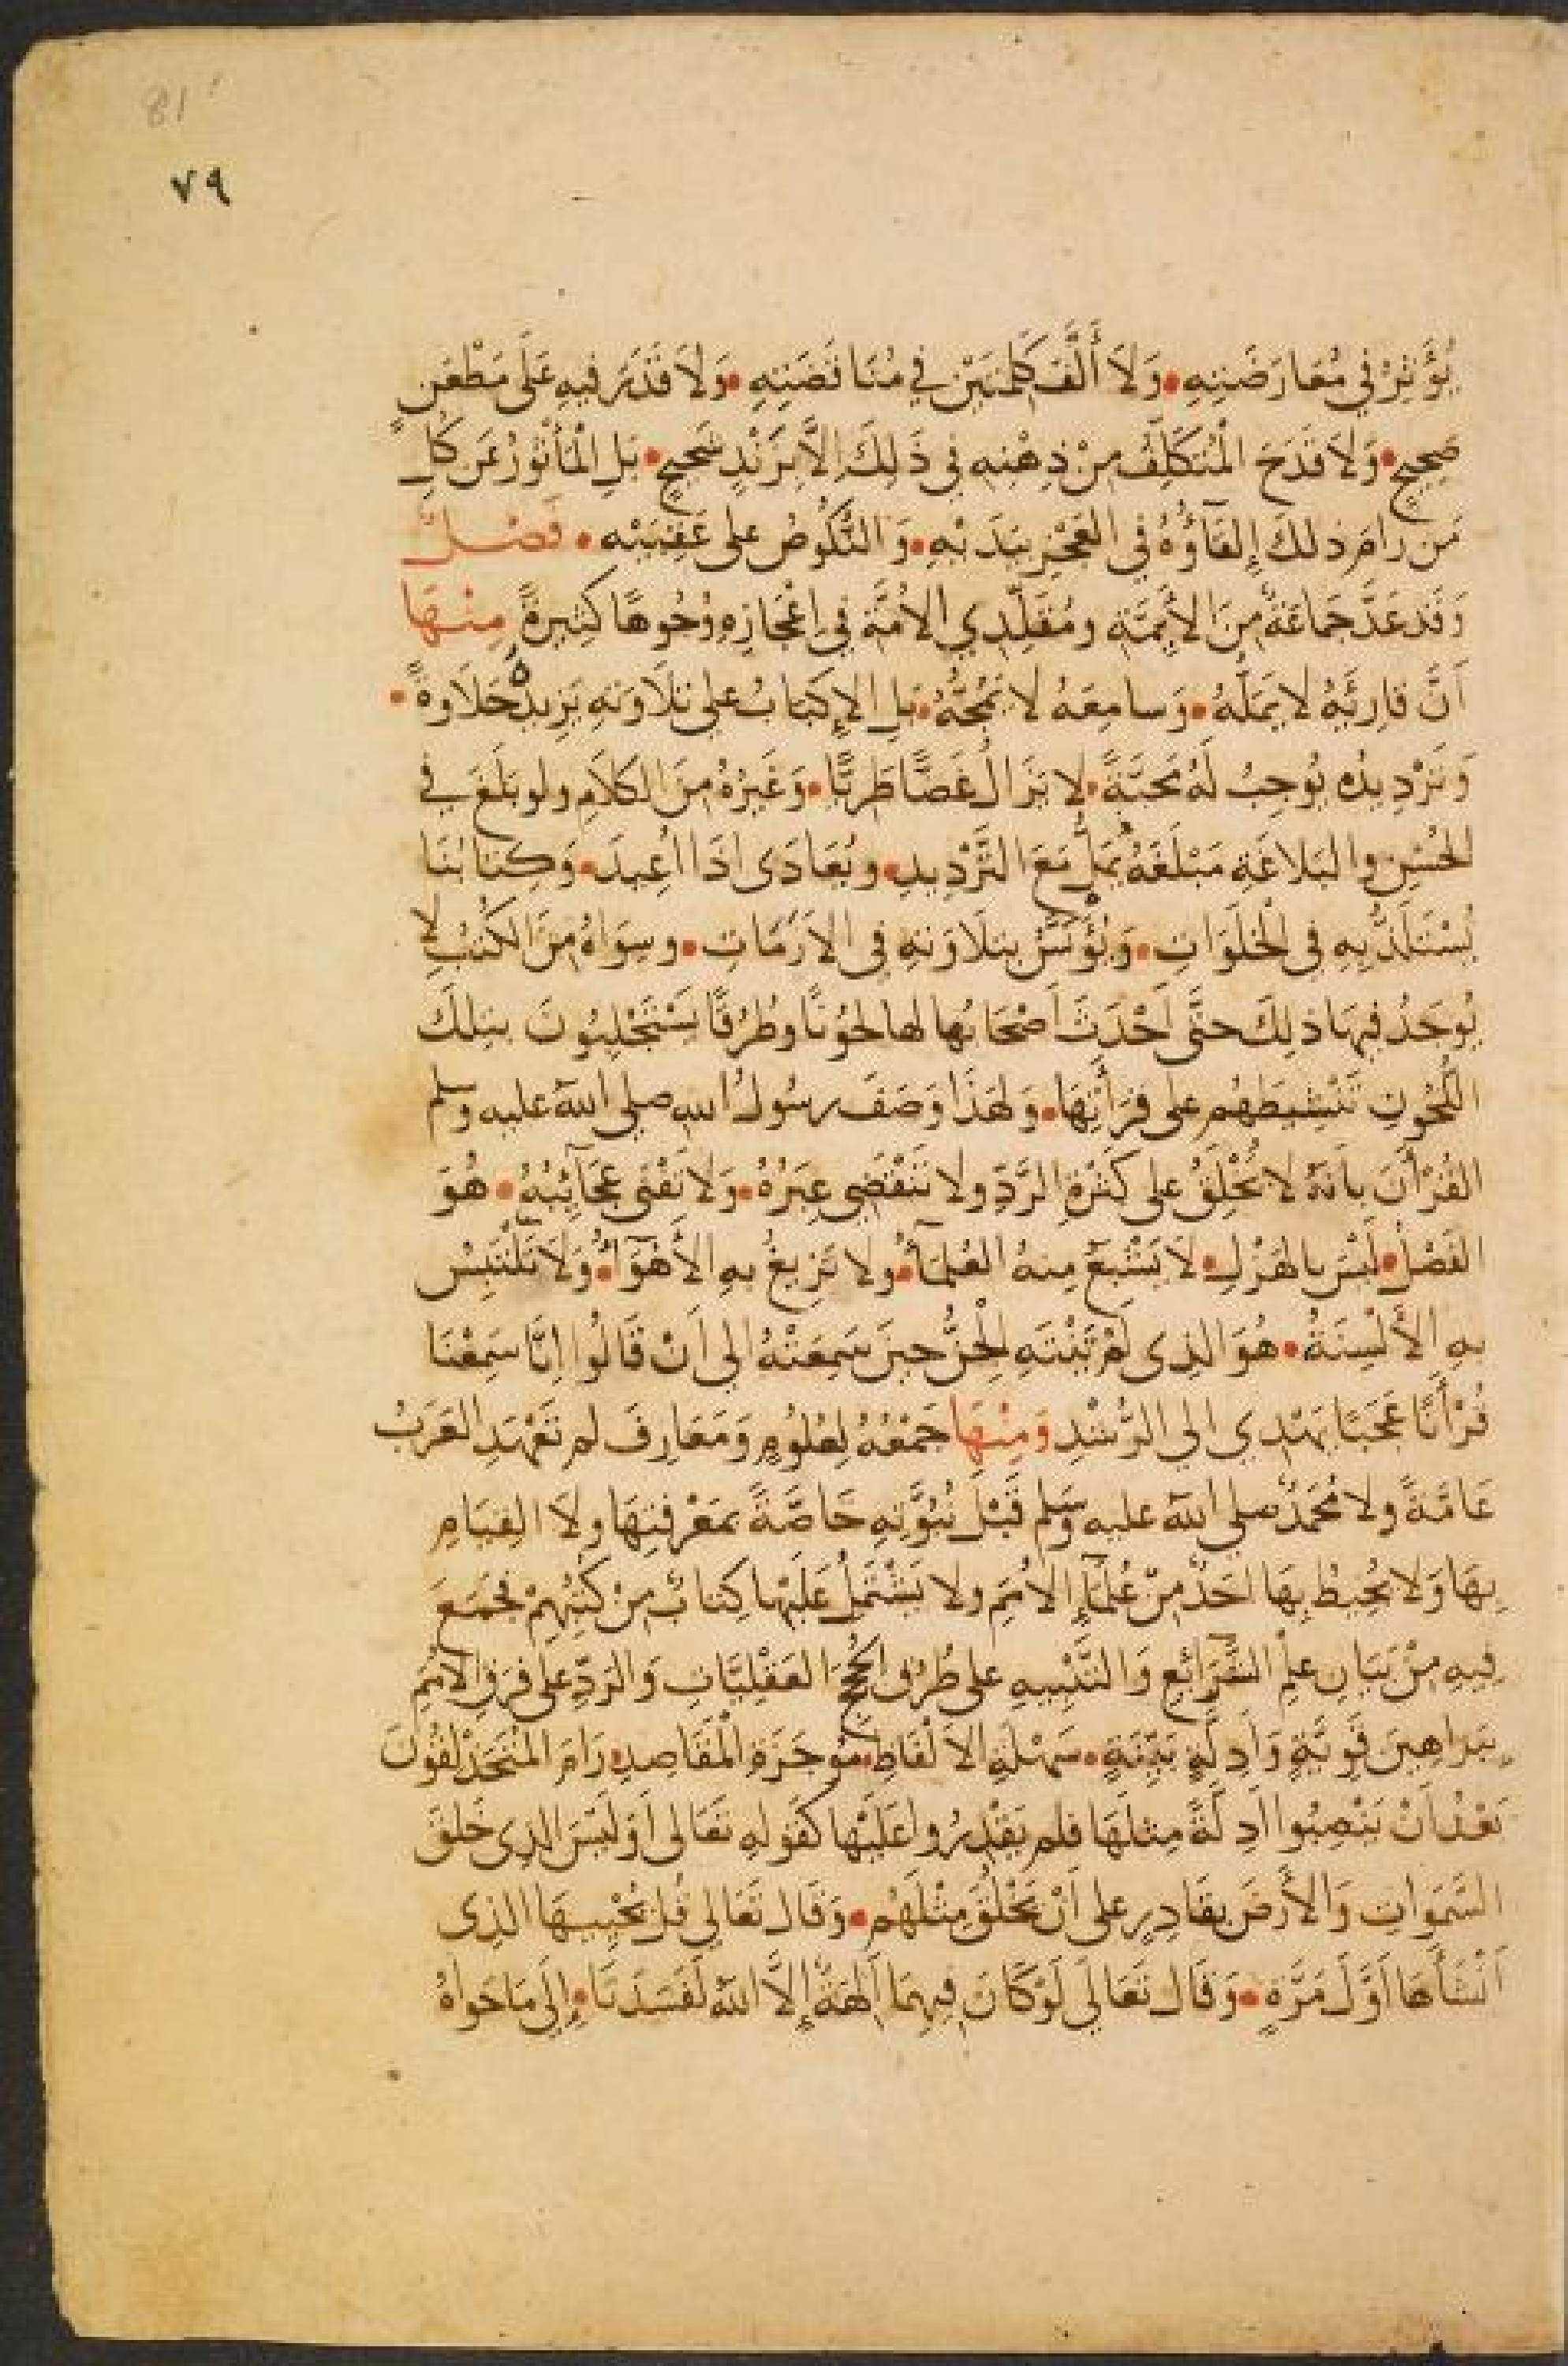 81
٧٩
يُؤْثِرُ فِي مُعَارَضَتِهِ • وَلَا أَلَّفَ كَلِمَتَيْنِ فِي مُنَاقَضَتِهِ • وَلَا قَدَرَ فِيهِ عَلَى مَطْعَنٍ
صَحِيحٍ • وَلَا قَدَحَ الْمُتَكَلِّفُ مِنْ ذِهْنِهِ فِي ذَلِكَ إِلَّا بِزَنْدٍ شَحِيحٍ • بَلِ الْمَأْثُورُ عَنْ كُلِّ
مَن رَامَ ذلكَ إِلقَاؤُهُ فِي العَجْزِ بِيَدَيْهِ • وَالنُّكُوصُ عَلى عَقِبَيْهِ • فَصْلٌ
وَقَد عَدَّ جَمَاعَةٌ مِنَ الأَئِمَّةِ ومُقَلِّدِي الأُمَّةِ فِي إِعْجَازِهِ وُجُوهًا كَثِيرَةً مِنْهَا
أَنَّ قَارِئَهُ لا يَمَلُّهُ • وَسامِعَهُ لا يَمُجُّهُ • بَلِ الإِكْبَابُ على تِلَاوَتِهِ يَزِيدُهُ حَلَاوَةً •
وَتَرْدِيدُه يُوجِبُ لَهُ مَحَبَّةً • لا يَزَالُ غَضًّا طَرِيًّا • وَغَيْرُهُ مِنَ الكلَامِ ولو بَلَغَ فِي
الحُسْنِ والبَلاغَةِ مَبْلَغَهُ يُمَلُّ مَعَ التَّرْدِيدِ • ويُعَادَى اذَا أُعِيدَ • وَكِتَابُنَا
يُسْتَلَذُّ بِهِ فِى الْخَلَوَاتِ • وَيُؤْنَسُ بِتِلَاوَتِهِ فِى الأَزَمَاتِ • وسِوَاهُ مِنَ الكُتُبِ لا
يُوجَدُ فِيهَا ذلِكَ حَتَّى أَحْدَثَ أَصْحَابُها لها لُحُونًا وطُرُقًا يَسْتَجْلِبُونَ بِتِلكَ
اللُّحُونِ تَنْشِيطَهُم على قِرَأَتِهَا • وَلِهَذَا وَصَفَ رسُولُ الله صلى الله عليه وسلم
القُرْأَنَ بِأَنَّهُ لا يَخْلُقُ على كَثْرَةِ الرَّدِّ ولا تَنْقَضِي عِبَرُهُ • وَلا تَفْنَى عَجَآئِبُهُ • هُوَ
الفَصْلُ • لَيْسَ بالهَزْلِ • لا يَشْبَعُ مِنهُ العُلَمَآءُ • ولا تَزِيغُ بهِ الأَهْوَآءُ • وَلَا تَلْتَبِسُ
بِهِ الأَلْسِنَةُ • هُوَ الذِى لَمْ تَنْتَهِ الْجِنُّ حِينَ سَمِعَتْهُ الي أَنْ قَالُوا انَّا سَمِعْنَا
قُرْأَنًا عَجَبًا يَهْدِي الي الرُّشْدِ وَمِنْهَا جَمْعُهُ لِعُلُومٍ وَمَعَارِفَ لم تَعْهَدِ العَرَبُ
عَامَّةً ولا مُحَمَّدٌ صلى الله عليه وسلم قَبْلَ نُبُوَّتِهِ خَاصَّةً بِمَعْرِفَتِهَا ولَا القِيَامِ
بِهَا وَلا يُحِيطُ بِهَا أَحَدٌ مِنْ عُلَمَآءِ الأُمَمِ ولا يَشْتَمِلُ عَلَيْها كِتابٌ مِنْ كُتُبِهِمْ فجَمَعَ
فِيهِ مِنْ بَيَانِ علمِ الشَّرَائِعِ وَالتَّنْبِيهِ على طُرُقِ الحُجَجِ العَقْلِيَّاتِ وَالرَدِّ على فِرَقِ الأُمَمِ
بِبَراهِينَ قَوِيَّةٍ وَأَدِلَّةٍ بَيِّنَةٍ • سَهْلَةِ الأَلْفَاظِ • مُوجَزَةِ الْمَقَاصِدِ • رَامَ المُتَحَذْلِقُونَ
بَعْدُ أَنْ يَنْصِبُوا أَدِلَّةً مِثلَهَا فلم يَقْدِرُوا عَلَيْها كقَولِهِ تَعَالى أَوَلَيْسَ الذِى خَلَقَ
السَّمَواتِ وَالأَرْضَ بِقَادِرٍ على أَنْ يَخْلُقَ مِثْلَهُم • وَقَال تَعَالى قُلْ يُحْيِيهَا الذِى
أَنْشَأَهَا أَوَّلَ مَرَّةٍ • وَقَالَ تَعَالَى لَوْ كَانَ فِيهِمَا آلِهَةٌ إِلَّا اللهُ لَفَسَدَتَا • إِلَى مَا حَوَاهُ